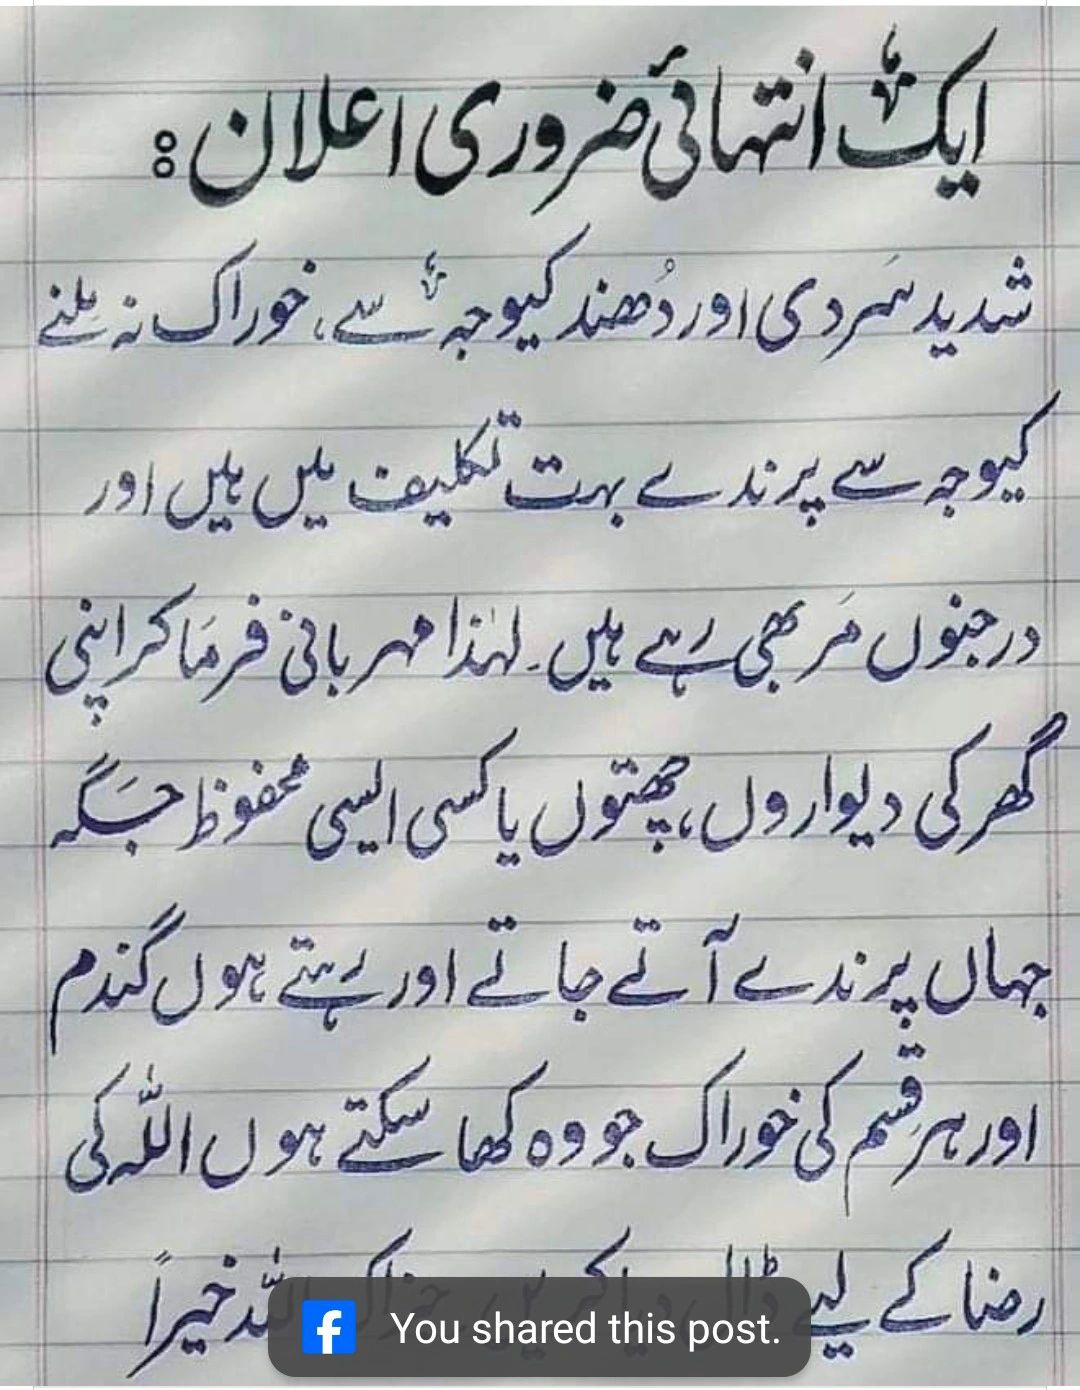 ایک انتہائی ضروری اعلان:
شدید سَردی اور دُھند کیوجہ سے، خوراک نہ مِلنے
کیوجہ سے پرندے بہت تکلیف میں ہیں اور
درجنوں مَر بھی رہے ہیں۔ لہٰذا مہربانی فرمَا کر اپنی
گھر کی دیواروں، چھتوں یا کسی ایسی محفوظ جَگہ
جہاں پرندے آتے جاتے اور رہتے ہوں گندم
اور ہر قِسم کی خوراک جو وہ کھا سکتے ہوں اللّٰہ کی
رضا کے لیے ڈال دیا کریں، جزاک اللّٰہ خیراً
You shared this post.